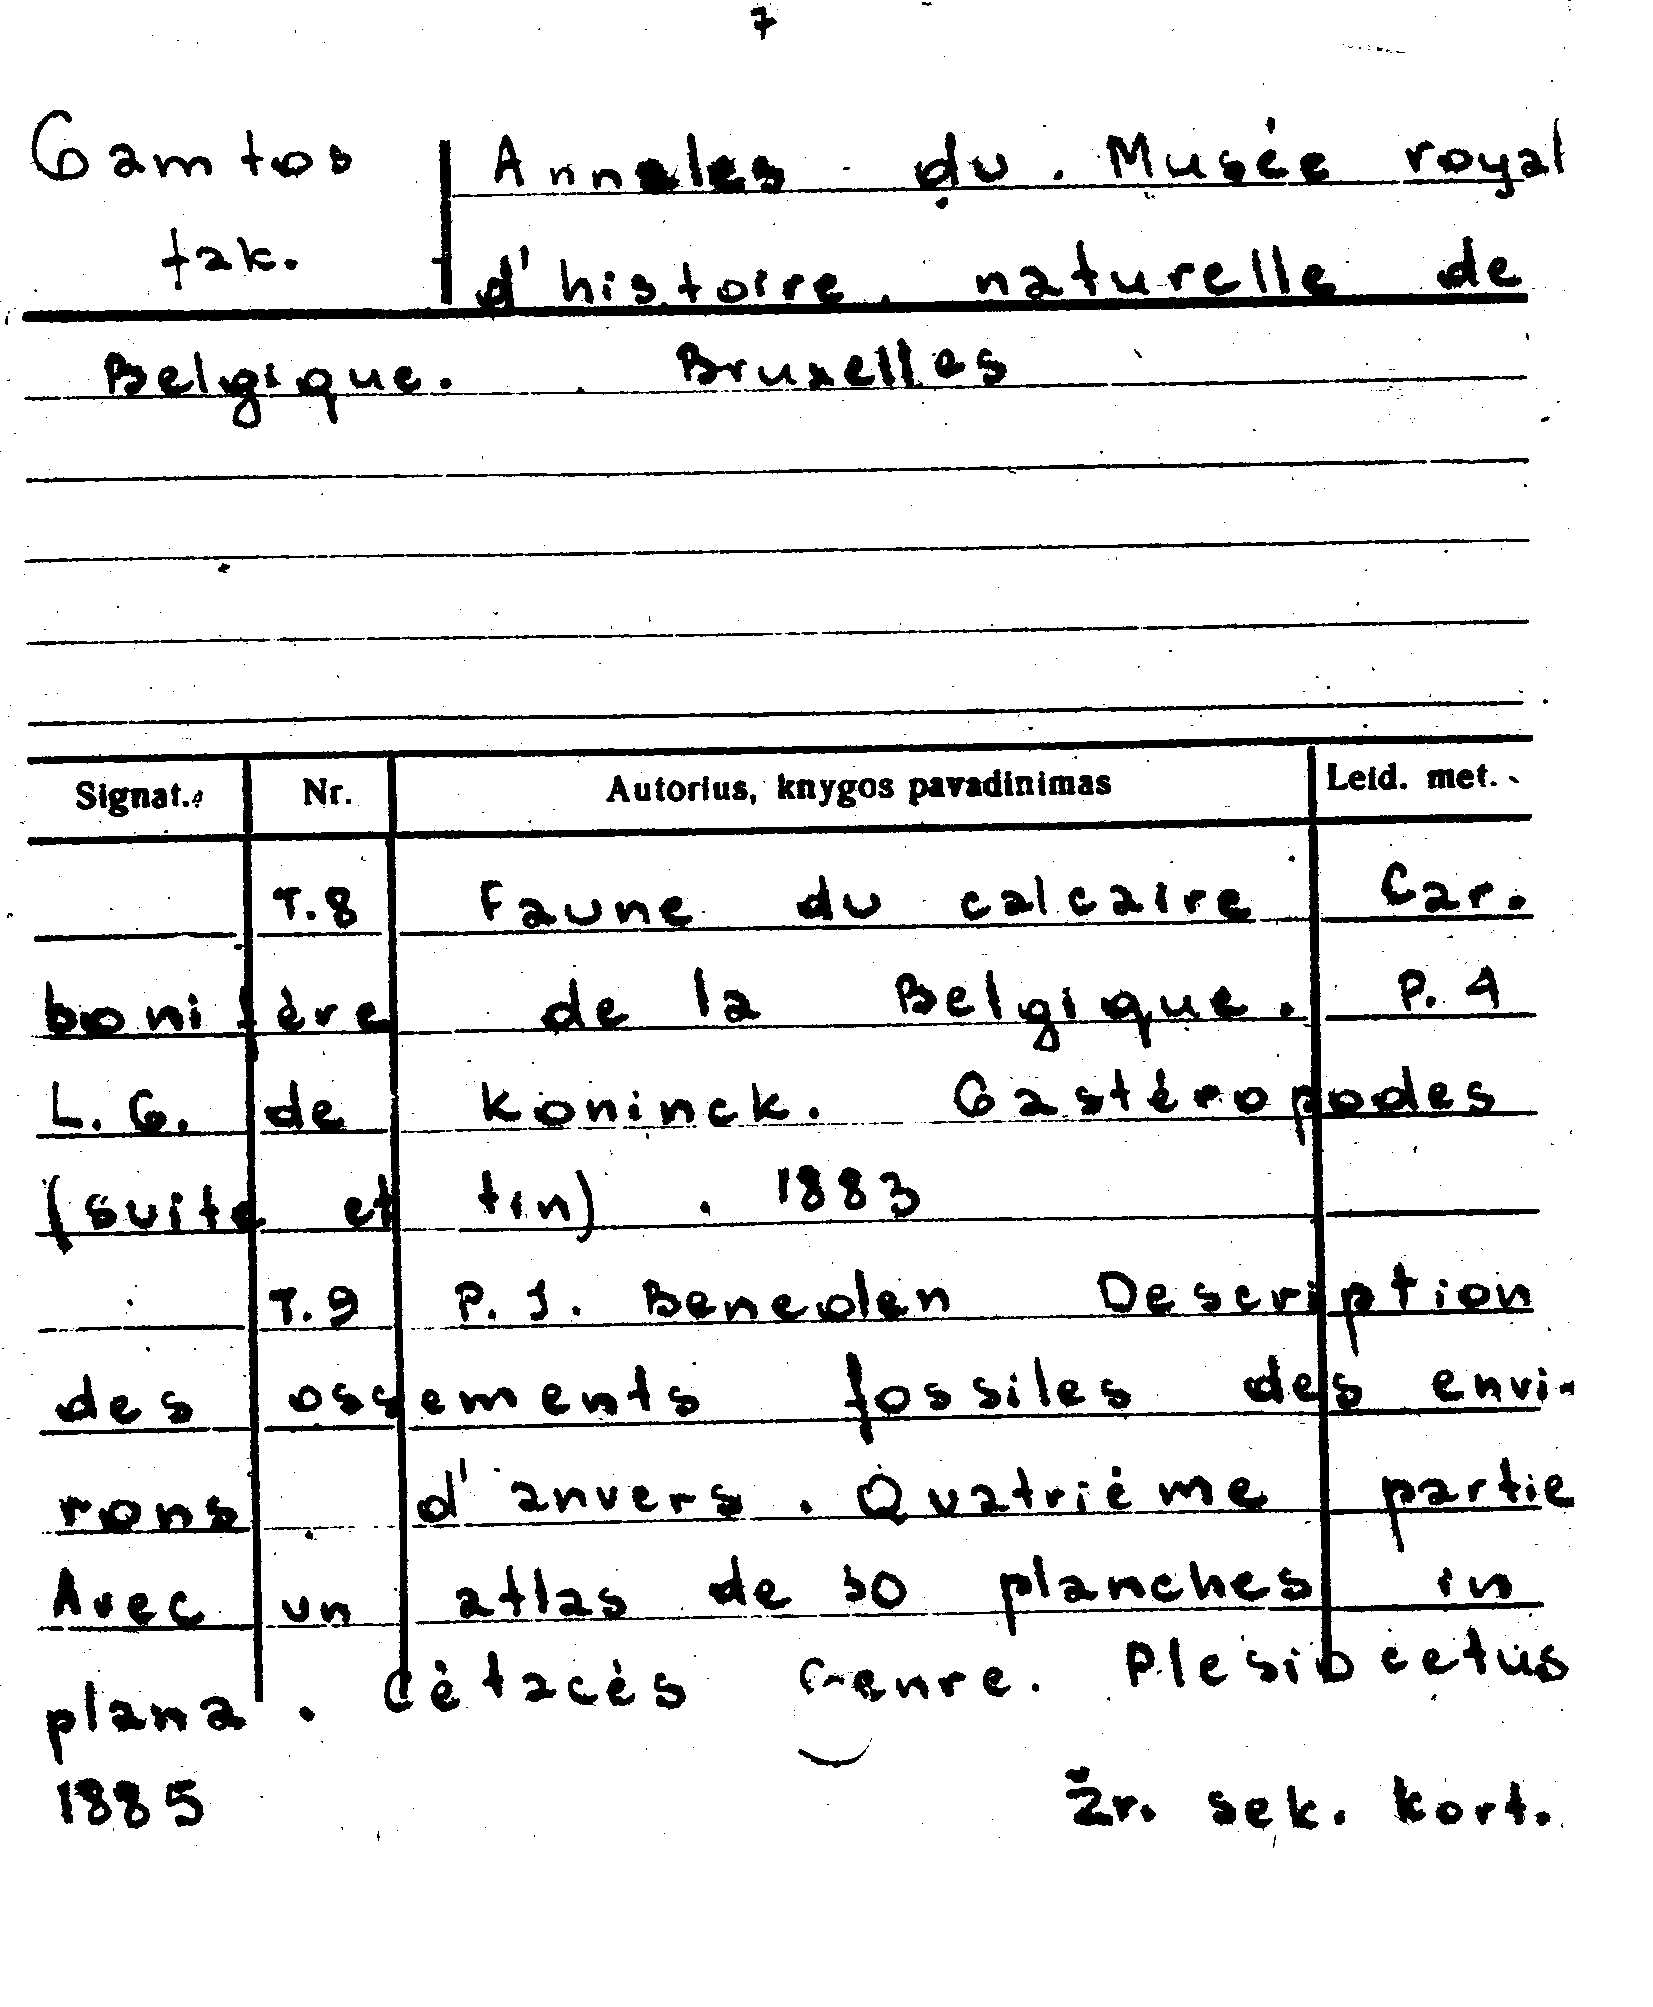 7
Gamtos Annales du Musée royal
fak. d'histoire naturelle de
Belgique. Bruxelles
Signat. Nr. Autorius, knygos pavadinimas Leid. met.
T.8 Faune du calcaire Car.
bonifère de la Belgique. P. 4
L. G. de Koninck. Gastéropodes
(suite et fin). 1883
T.9 P. J. Beneden Description
des ossements fossiles des envi-
rons d'anvers. Quatriéme partie
Avec un atlas de 30 planches in
plana. Cétacés Genre. Plesiocetus
1885 Žr. sek. kort.